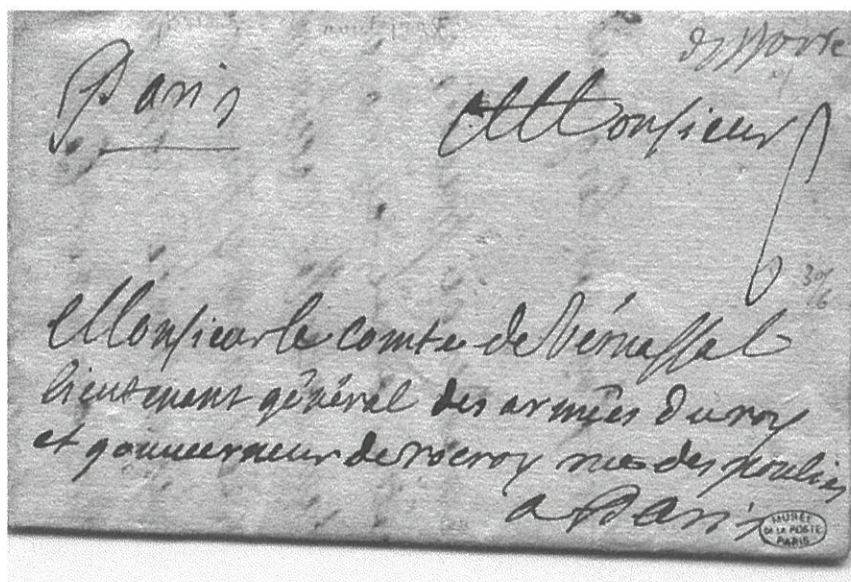 Paris
Monsieur
Monsieur le comte de Vernassal
lieutenant général des armées du roy
et gouverneur de rocroy rue des poulies
a Paris
MUSÉE
DE LA POSTE
PARIS